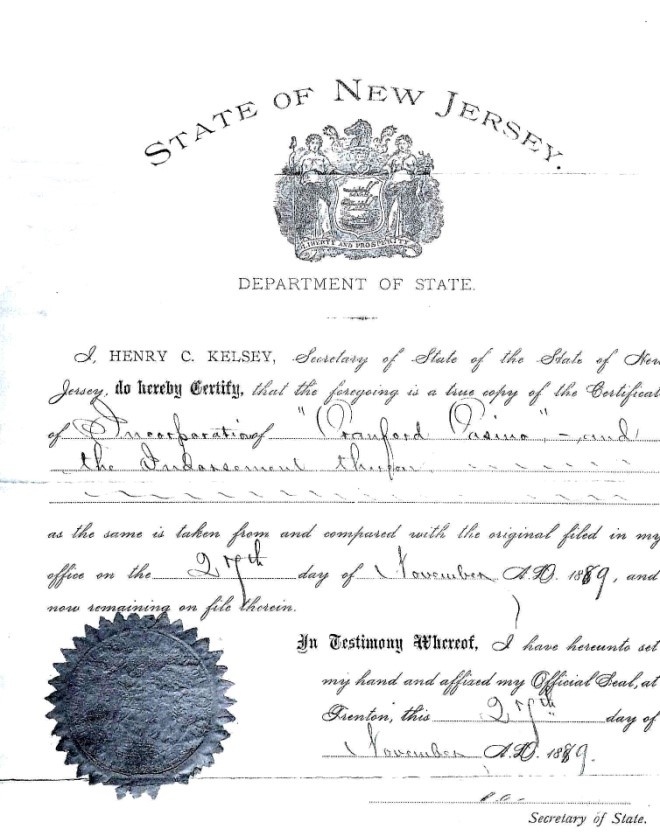 STATE OF NEW JERSEY.
LIBERTY AND PROSPERITY
DEPARTMENT OF STATE.
I, HENRY C. KELSEY, Secretary of State of the State of New
Jersey, do hereby Certify, that the foregoing is a true copy of the Certificat
of Incorporation of "Cranford Casino", - and
the Indorsement
as the same is taken from and compared with the original filed in my
office on the 27th day of November A.D. 1889, and
now remaining on file therein.
In Testimony Whereof, I have hereunto set
my hand and affixed my Official Seal, at
Trenton, this 27th day of
November A.D. 1889.
Secretary of State.